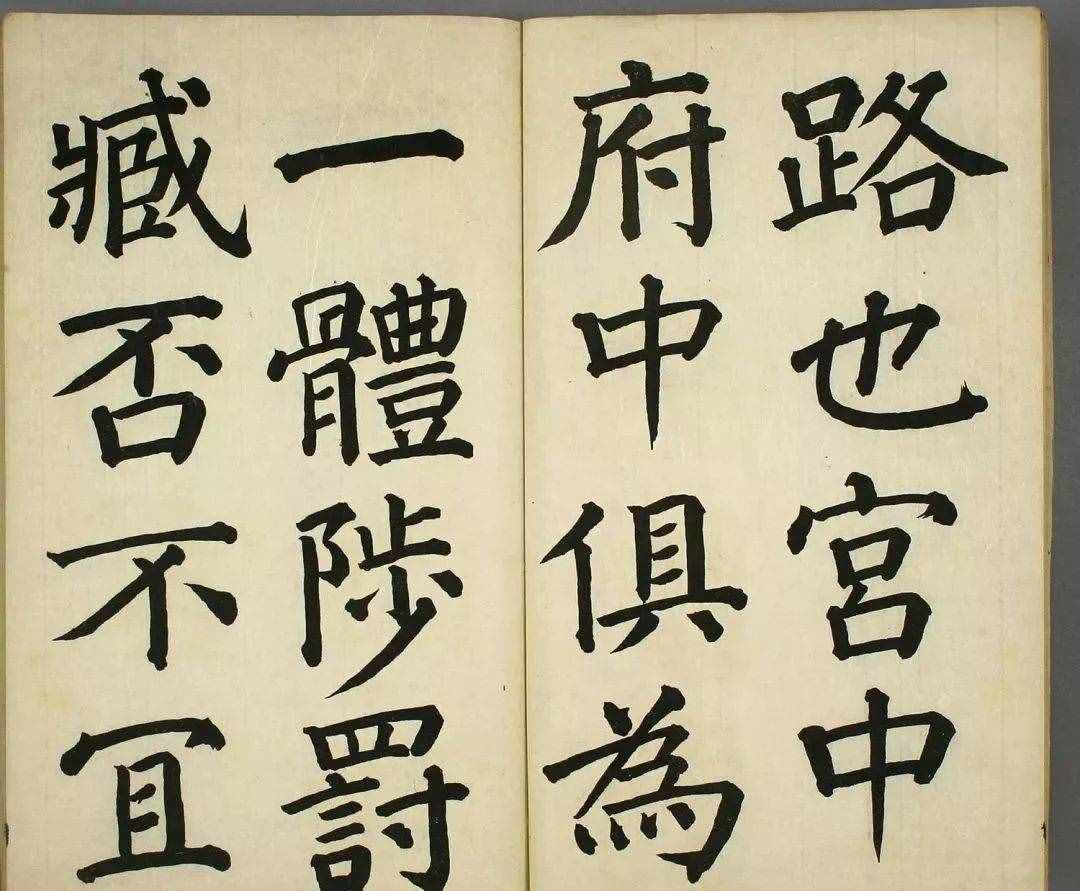 路也宮中
府中俱為
一體陟罰
臧否不冝